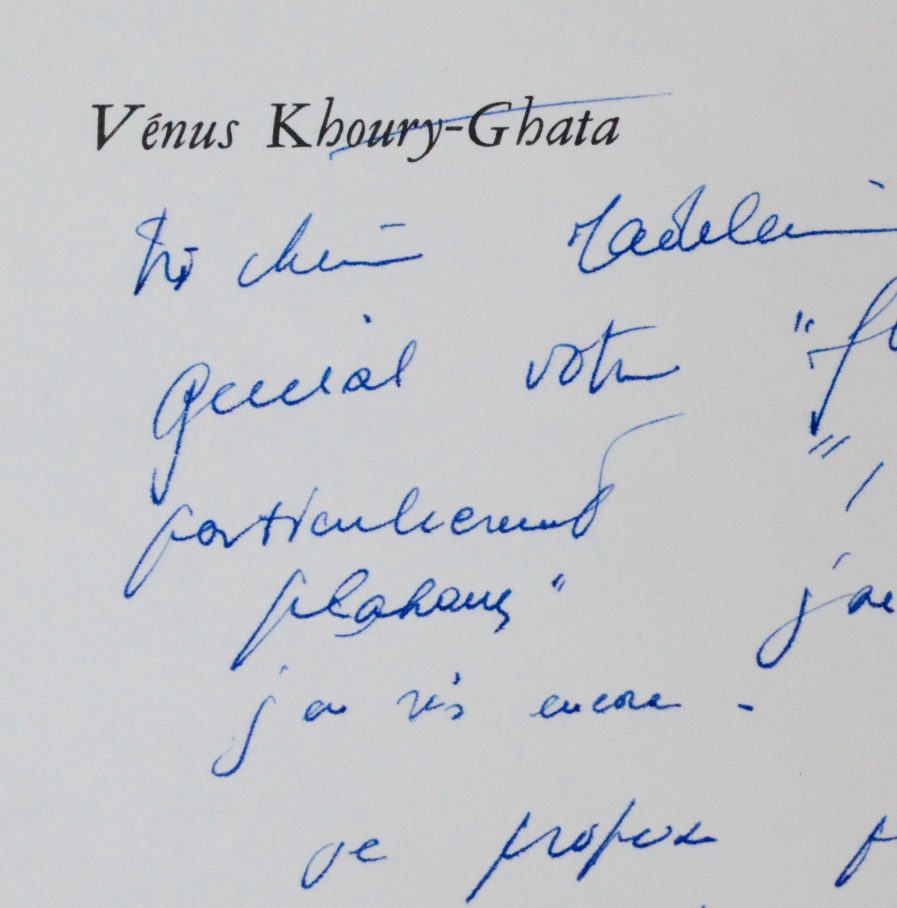 Vénus Khoury-Ghata
Très chère Madelein
Génial votre "fl
particulièrement " ,
platanes" j'ai
j'en ris encore -
je propose p